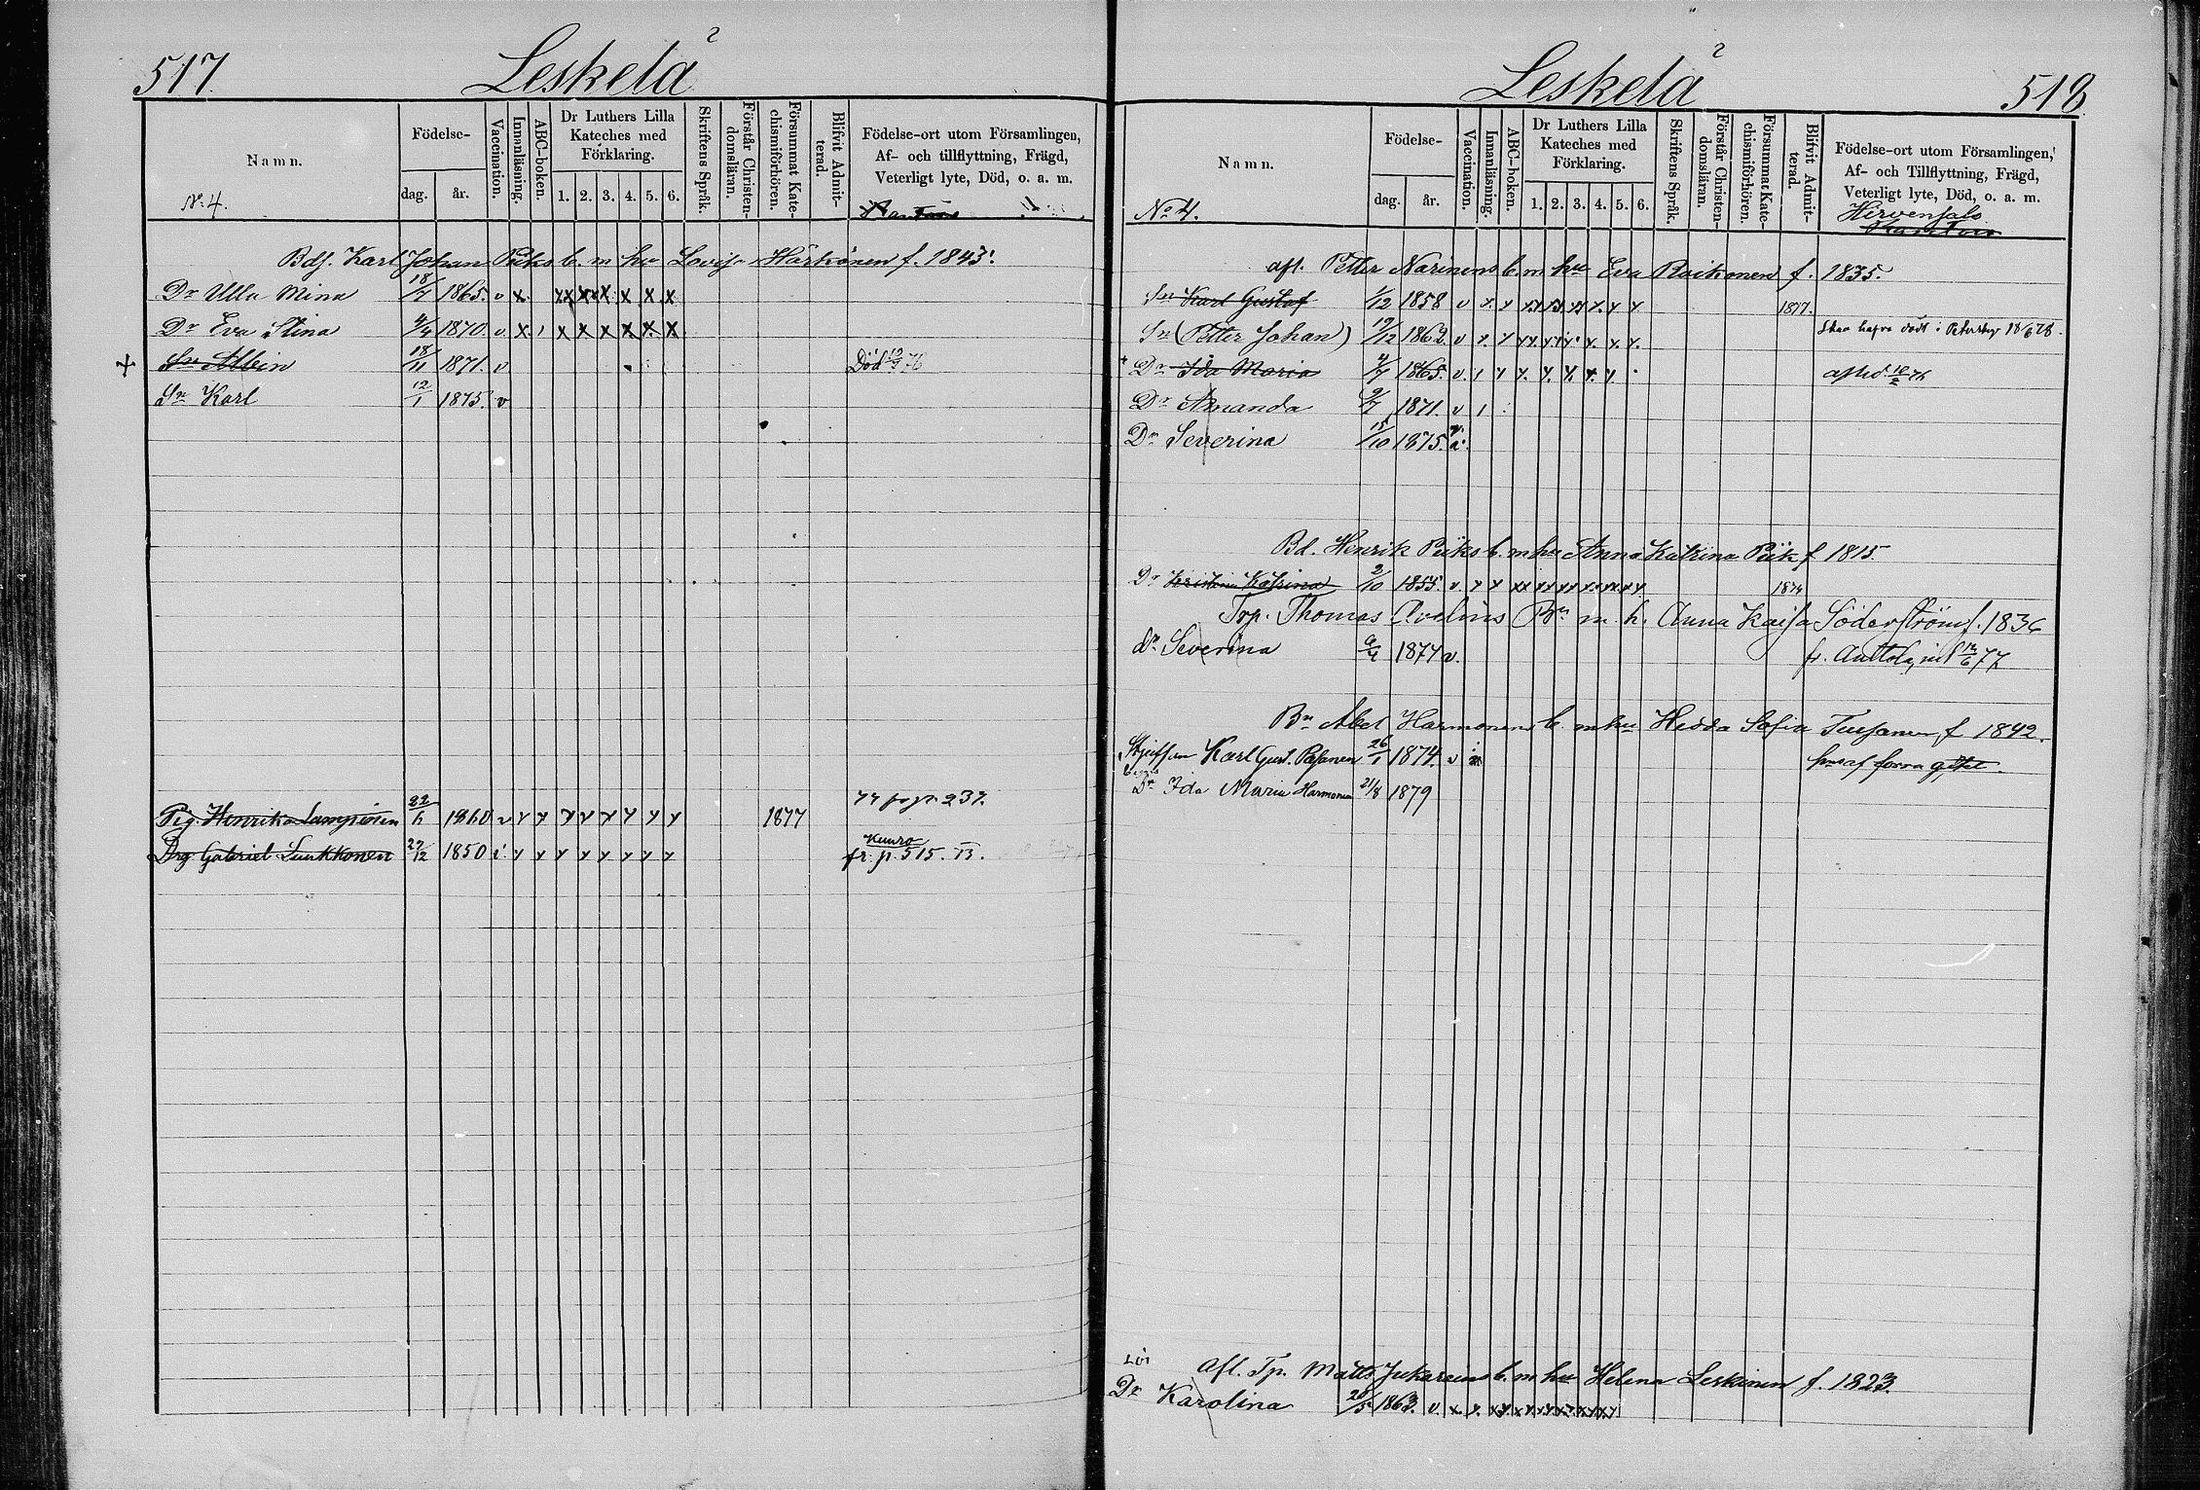 517.
Leskelä 2
Namn.
No 4.
Födelse-
dag.
år.
Vaccination.
Innanläsning.
ABC-boken.
Dr Luthers Lilla
Kateches med
Förklaring.
1. 2. 3. 4. 5. 6.
Skriftens Språk.
Förstår Christen-
domsläran.
Försummat Kate-
chismiförhören.
Blifvit Admit-
terad.
Födelse-ort utom Församlingen,
Af- och tillflyttning, Frägd,
Veterligt lyte, Död, o. a. m.
Bdf. Karl Johan Püks b. m hu Lovisa Härkönen f. 1843.
Dr Ulla Mina 18/7 1865. v x xx xx x x x x
Dr Eva Stina 4/4 1870. v. x 1 x x x x x x
Sn Albin 18/11 1871. v Död 12/3 76
Sn Karl 12/1 1875. v
Pig. Henrika Lampinen 22/6 1860 v y y y y y y y y 1877 77 pag. 237.
Kunro
Drg Gabriel Luukkonen 27/12 1850 i. y y y y y y y y fr. p. 515. II.
Leskelä 2
518
Namn.
No 4.
Födelse-
dag.
år.
Vaccination.
Innanläsning.
ABC-boken.
Dr Luthers Lilla
Kateches med
Förklaring.
1. 2. 3. 4. 5. 6.
Skriftens Språk.
Förstår Christen-
domsläran.
Försummat Kate-
chismiförhören.
Blifvit Admit-
terad.
Födelse-ort utom Församlingen,
Af- och Tillflyttning, Frägd,
Veterligt lyte, Död, o. a. m.
Hirvensalo
afl. Petter Narinens b. m hu Eva Roikonen f. 1835.
Sn Karl Gustaf 1/12 1858 v x. y y.y y.y y.y y. y y 1877.
Sn (Petter Johan) 19/12 1862 v y. y y.y. y. y.y. y. y. y. Skall hafva dödt i Petersbg 18/6 78.
Dr Ida Maria 4/7 1865. v. 1 y y. y. y. y. y. afled. 10/2 76
Dr Amanda 9/7 1871. v 1
Dr Severina 15/10 1875. v.
Bd. Henrik Püks b. m hu Anna Katrina Püik f. 1815.
Dr Kristina Katrina 2/10 1855. v. y y xx y y y y y y y y y 1874
Trp. Thomas Avelins Bn m. h. Anna Kaisa Söderström f. 1836
dr Severina 6/4 1877 v. fr. Anttola, inf 12/6 77
Bn Abel Harmonens b. m hu Hedda Sofia Tuhanen f 1842.
Styfson Karl Gust. Pasanen 26/1 1874. v
Dr Ida Maria Harmonen 21/8 1879
Lös
Afl. Tp. Matts Jukarains b. m hu Helena Leskinen f. 1823.
Dr Karolina 20/5 1863. v. x y. xy x y y x y x y x y